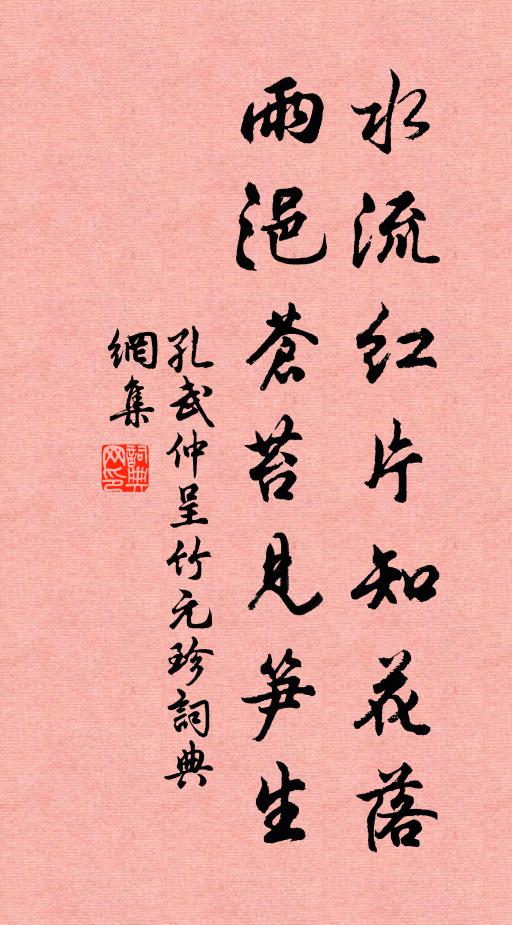 水流红片知花落
雨浥蒼苔見笋生
孔武仲呈竹元珍詞典
網集
詞典网印